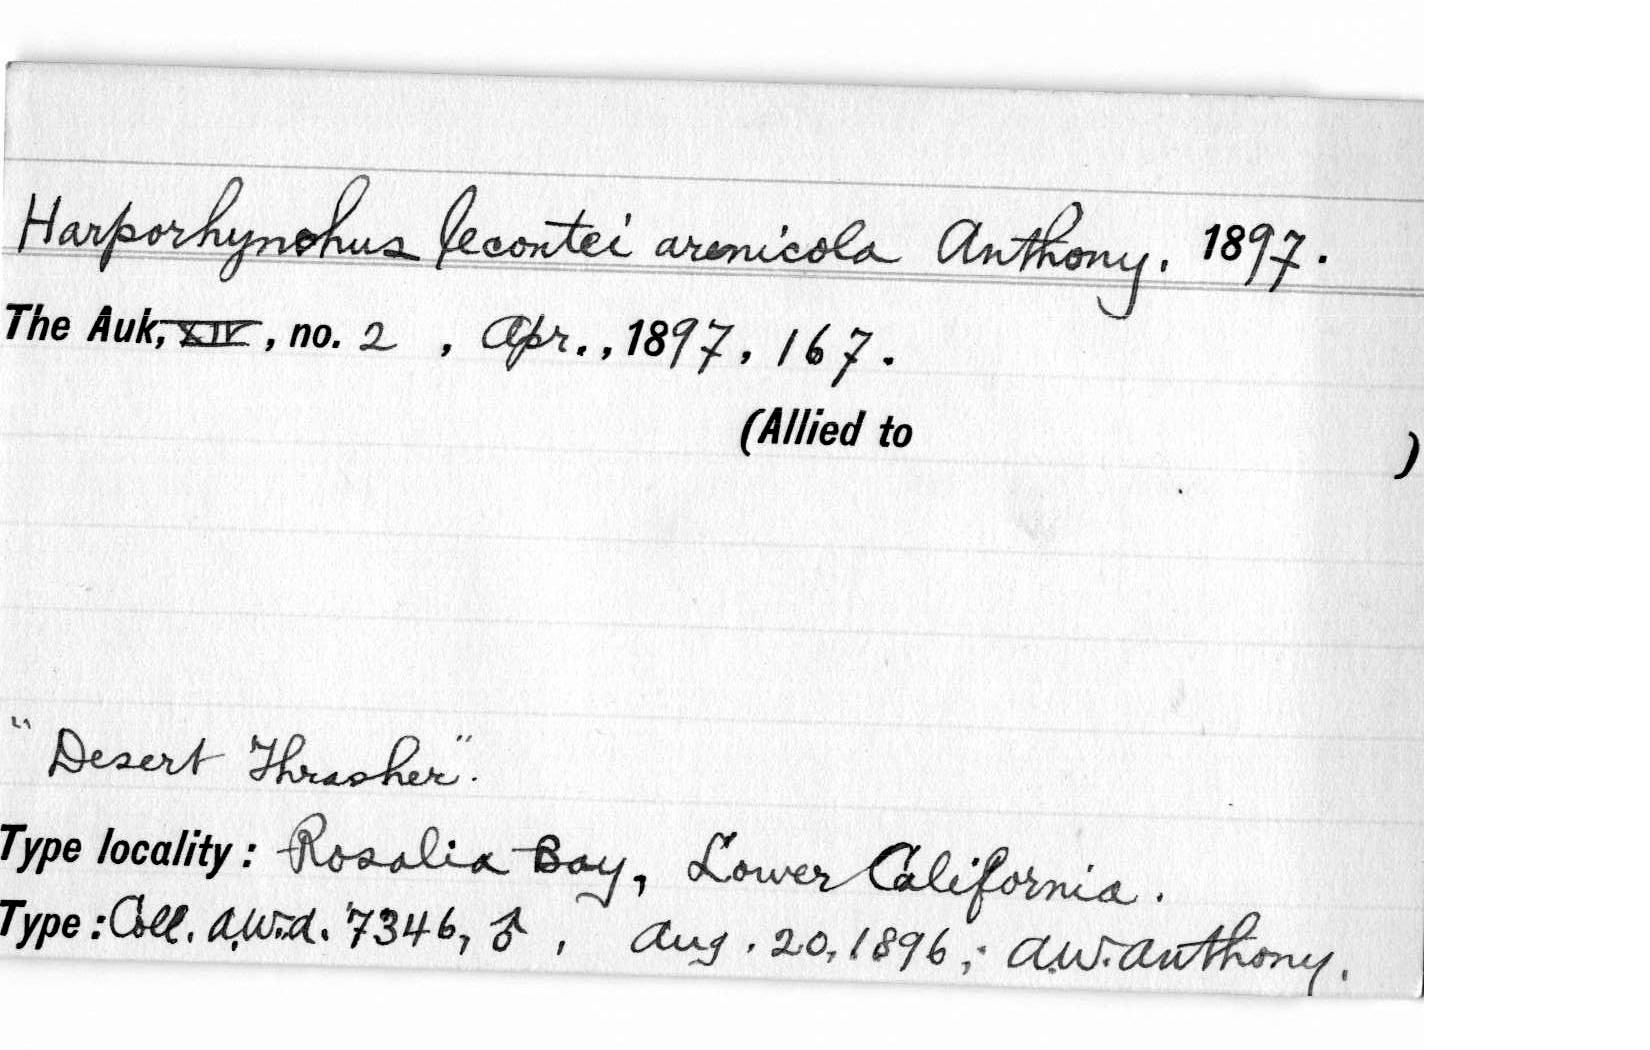 Harporhynchus lecontei arenicola Anthony, 1897.
The Auk, XIV, no. 2, Apr., 1897, 167.
(Allied to )
"Desert Thrasher".
Type locality: Rosalia Bay, Lower California.
Type: Coll. A.W.A. 7346, ♂, Aug. 20, 1896; A.W. Anthony.